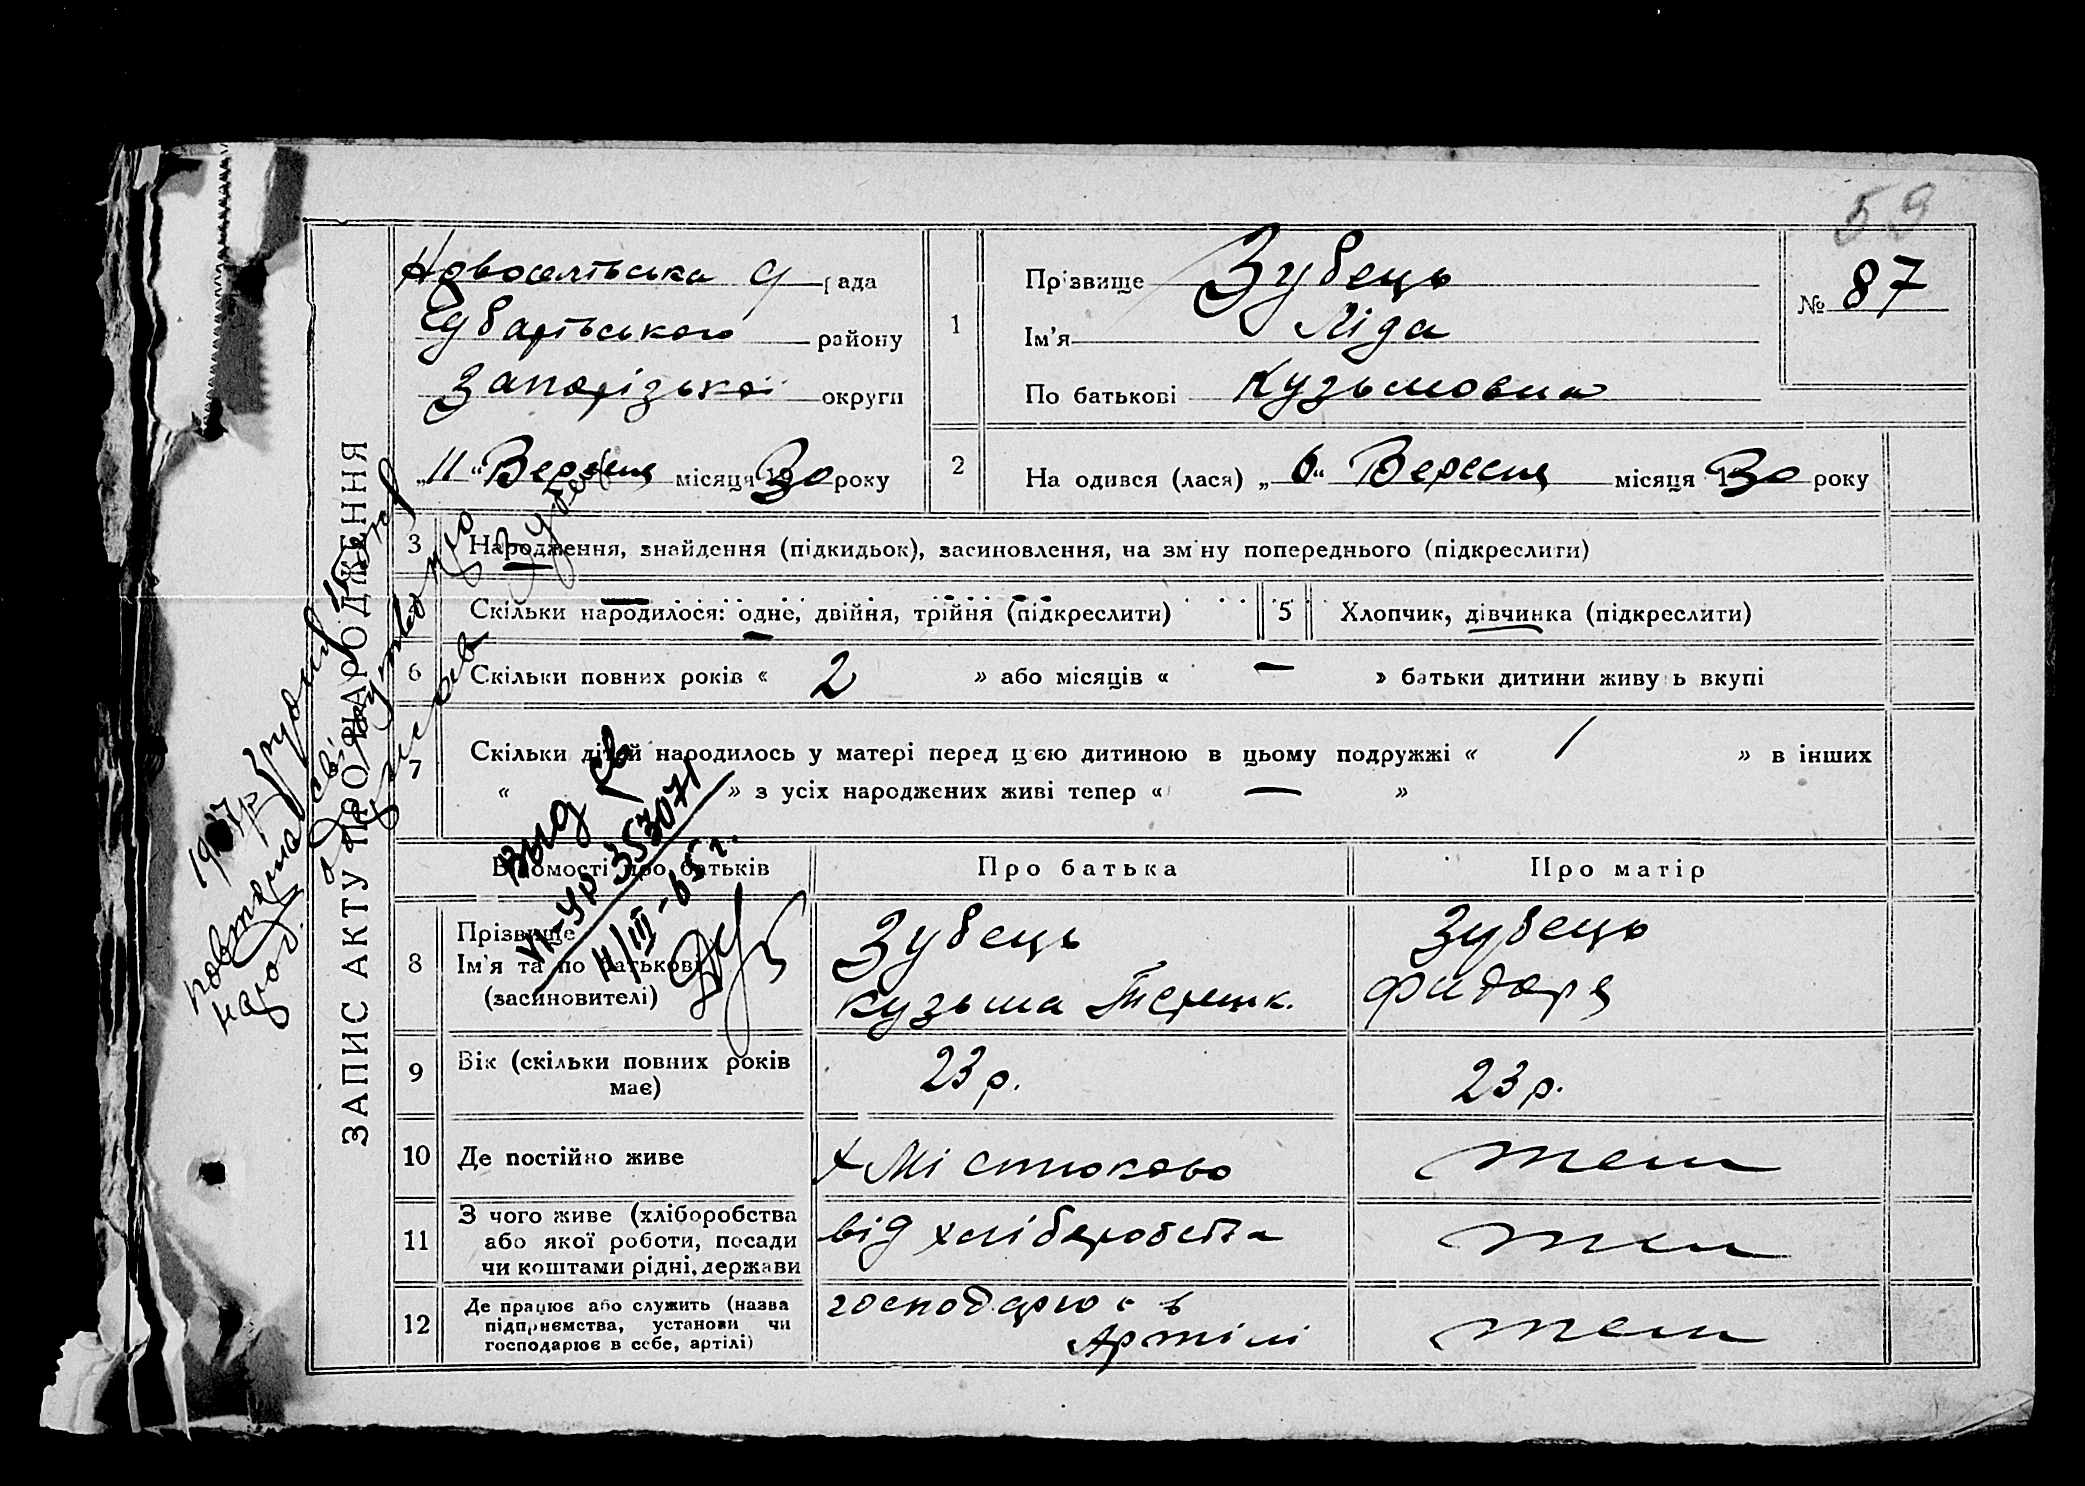 59
Новоселівська с рада
Чубарівського району
Запорізької округи
„11“ Вересня місяця 1930 року
1
Прізвище Зубець
Ім'я Ліда
По батькові Кузьмовна
№ 87
2
На одився (лася) „6“ Вересня місяця 1930 року
ЗАПИС АКТУ ПРО НАРОДЖЕННЯ
3 Народження, знайдення (підкидьок), засиновлення, на зміну попереднього (підкреслити)
Скільки народилося: одне, двійня, трійня (підкреслити)
5 Хлопчик, дівчинка (підкреслити)
6 Скільки повних років « 2 » або місяців « — » батьки дитини живуть вкупі
7 Скільки дітей народилось у матері перед цією дитиною в цьому подружжі « 1 » в інших
« » з усіх народжених живі тепер « — »
Відомості про батьків
Про батька
Про матір
8 Прізвище
Ім'я та по батькові
(засиновителі)
Зубець
Кузьма Терешк.
Зубець
Фидоря
9 Вік (скільки повних років має)
23 р.
23 р.
10 Де постійно живе
х Містюково
теж
11 З чого живе (хліборобства
або якої роботи, посади
чи коштами рідні, держави
від хліборобства
теж
12 Де працює або служить (назва
підприємства, установи чи
господарює в себе, артілі)
господарює в
Артілі
теж
1937р
повторно
народ.
Зубець
вид св
VI-УР 353071
11/III-65 г.